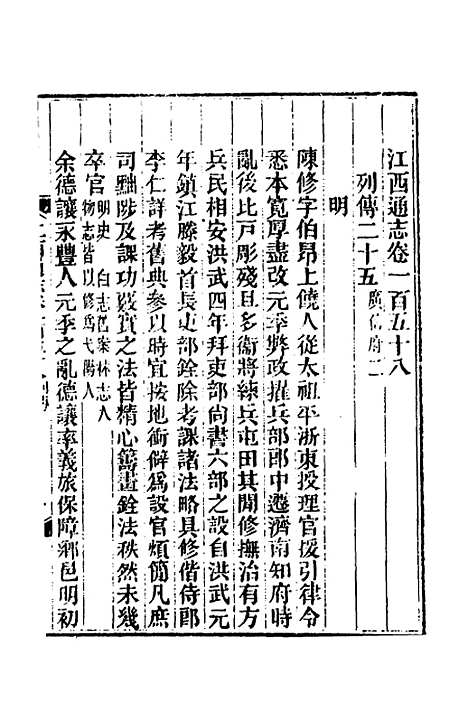 江西通志卷一百五十八
列傳二十五 廣信府二
明
陳修字伯昂上饒人從太祖平浙東授理官援引律令
悉本寬厚盡改元季弊政擢兵部郎中遷濟南知府時
亂後比戸彫殘且多衞將練兵屯田其閒修撫治有方
兵民相安洪武四年拜吏部尙書六部之設自洪武元
年鎮江滕毅首長吏部銓除考課諸法略具修偕侍郎
李仁詳考舊典參以時宜按地衝僻爲設官煩簡凡庶
司黜陟及課功覈實之法皆精心籌畫銓法秩然未幾
卒官 明史 白志舊案林志人
物志皆以修爲弋陽人
余德讓永豐人元季之亂德讓率義旅保障鄉邑明初